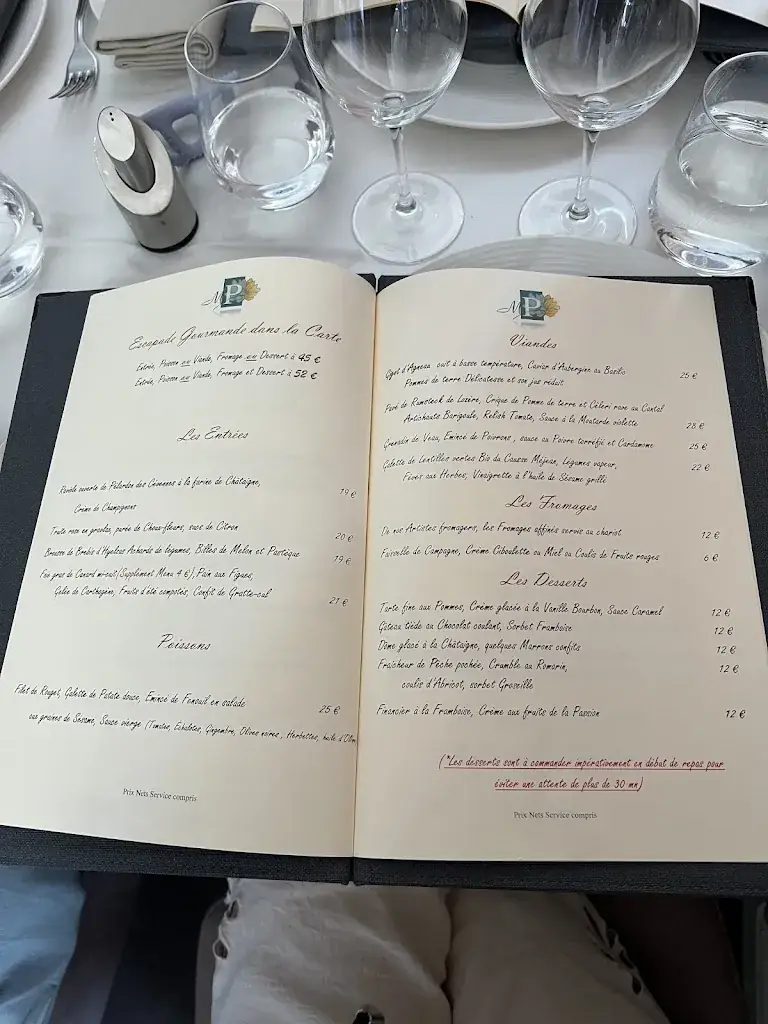 MP
Escapade Gourmande dans la Carte
Entrée, Poisson au Viande, Fromage au Dessert à 45 €
Entrée, Poisson au Viande, Fromage et Dessert à 52 €
Les Entrées
Raviole ouverte de Pélardon des Cévennes à la farine de Châtaigne,
Crème de Champignons 19 €
Truite rose en gravlax, purée de Choux-fleurs, sucs de Citron 20 €
Brousse de Brebis d'Hyelzas Achards de légumes, Billes de Melon et Pastèque 19 €
Foie gras de Canard mi-cuit (Supplément Menu 4 €), Pain aux Figues,
Gelée de Carthagène, Fruits d'été compotés, Confit de Gratte-cul 21 €
Poissons
Filet de Rouget, Galette de Patate douce, Emincé de Fenouil en salade
aux graines de Sésame, Sauce vierge (Tomates, Echalotes, Gingembre, Olives noires, Herbettes, huile d'Olive 25 €
Prix Nets Service compris
MP
Viandes
Gigot d'Agneau cuit à basse température, Caviar d'Aubergine au Basilic
Pommes de terre Délicatesse et son jus réduit 25 €
Pavé de Rumsteck de Lozère, Crique de Pomme de terre et Céleri rave au Cantal
Artichauts Barigoule, Relish Tomate, Sauce à la Moutarde violette 28 €
Grenadin de Veau, Emincé de Poivrons, sauce au Poivre torréfié et Cardamome 25 €
Galette de Lentilles vertes Bio du Causse Méjean, Légumes vapeur, 22 €
Fèves aux Herbes, Vinaigrette à l'huile de Sésame grillé
Les Fromages
De nos Artistes fromagers, les Fromages affinés servis au chariot 12 €
Faisselle de Campagne, Crème Ciboulette ou Miel ou Coulis de Fruits rouges 6 €
Les Desserts
Tarte fine aux Pommes, Crème glacée à la Vanille Bourbon, Sauce Caramel 12 €
Gâteau tiède au Chocolat coulant, Sorbet Framboise 12 €
Dôme glacé à la Châtaigne, quelques Marrons confits 12 €
Fraîcheur de Pêche pochée, Crumble au Romarin, 12 €
coulis d'Abricot, sorbet Groseille
Financier à la Framboise, Crème aux fruits de la Passion 12 €
(*Les desserts sont à commander impérativement en début de repas pour
éviter une attente de plus de 30 mn)
Prix Nets Service compris